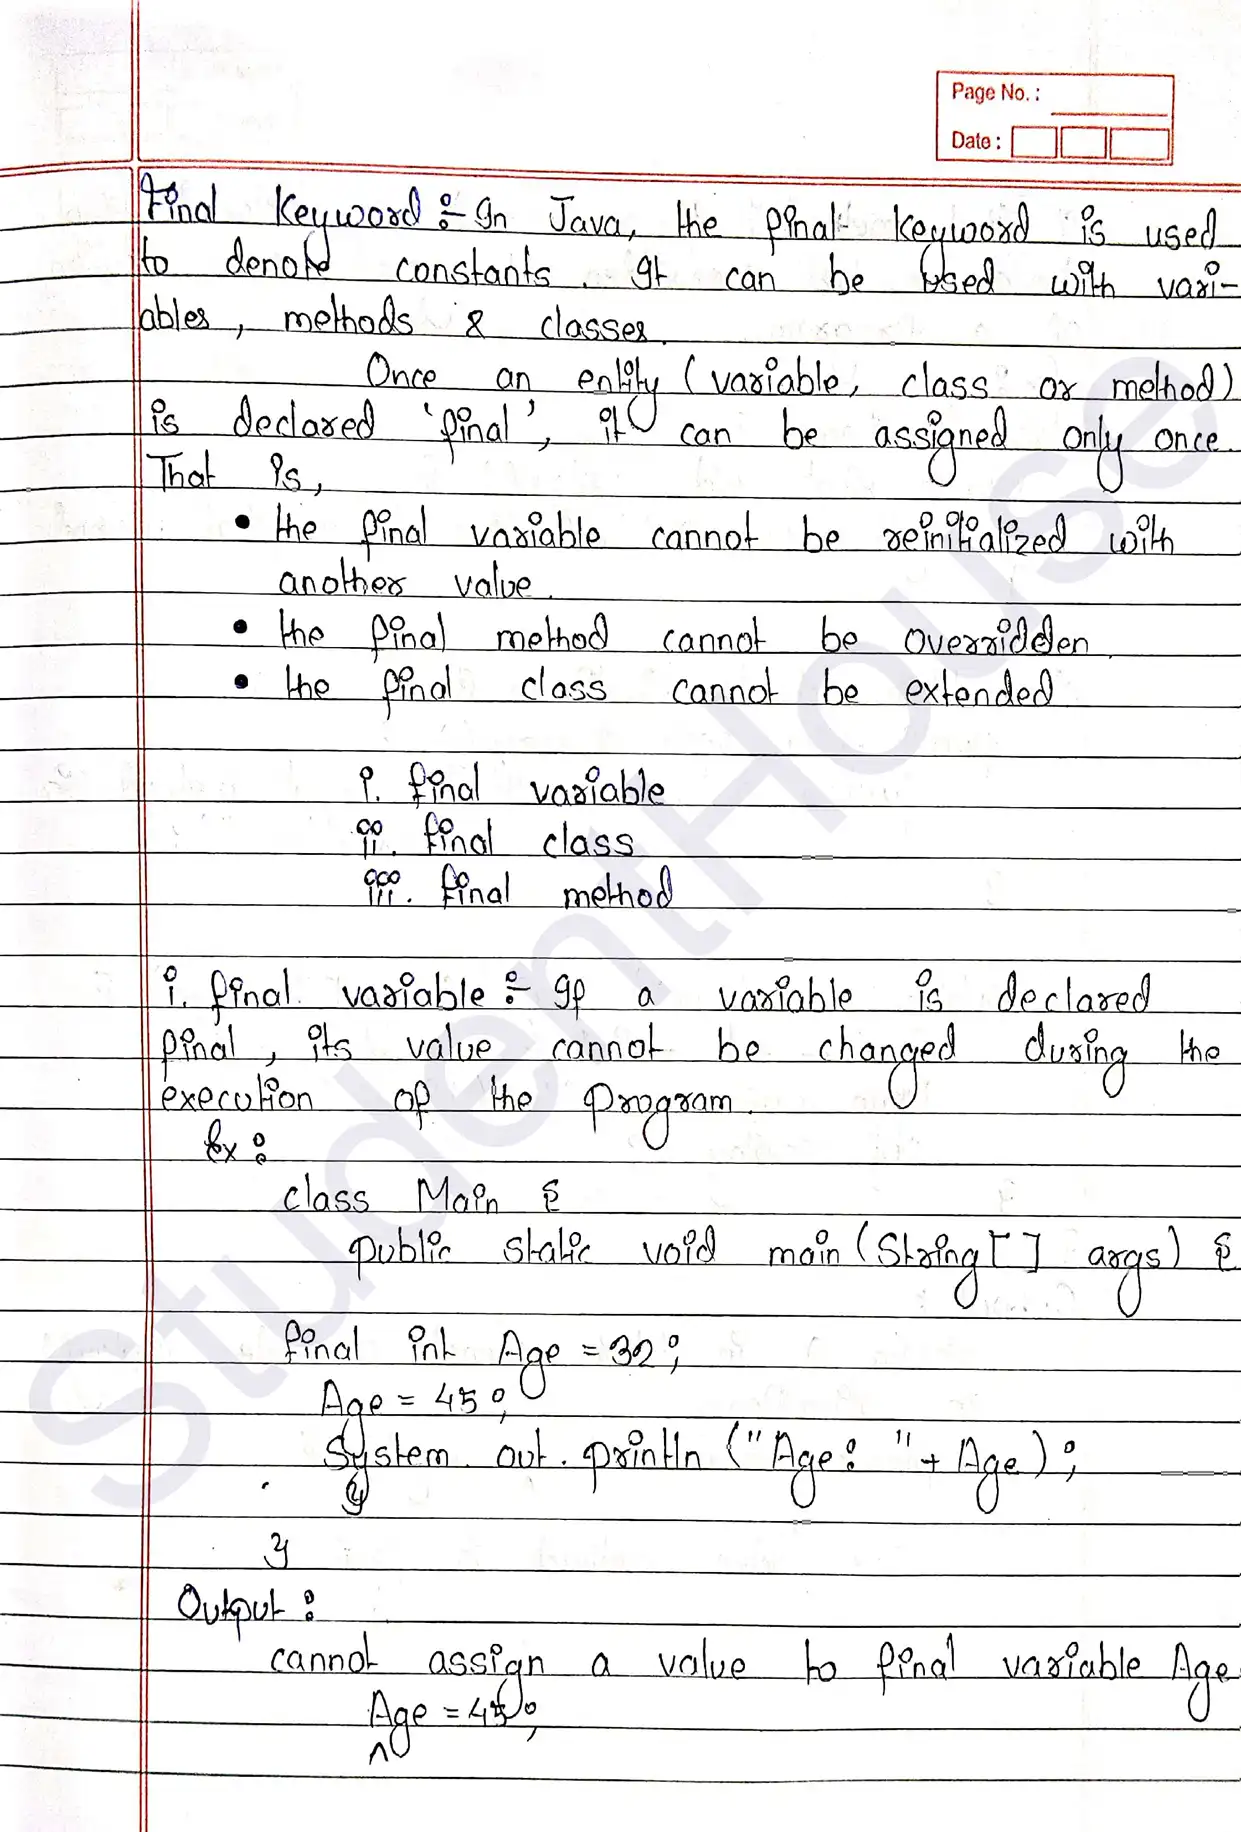 Page No. :
Date :
Final Keyword :- In Java, the final keyword is used
to denote constants. It can be used with vari-
ables, methods & classes.
Once an entity (variable, class or method)
is declared 'final', it can be assigned only once.
That is,
• the final variable cannot be reinitialized with
another value.
• the final method cannot be overridden.
• the final class cannot be extended
i. final variable
ii. final class
iii. final method
i. final variable :- If a variable is declared
final, its value cannot be changed during the
execution of the program.
Ex:
class Main {
public static void main (String [] args) {
final int Age = 32;
Age = 45;
System. out. println ("Age: " + Age);
}
}
Output:
cannot assign a value to final variable Age
Age = 45;
^
StudentHouse